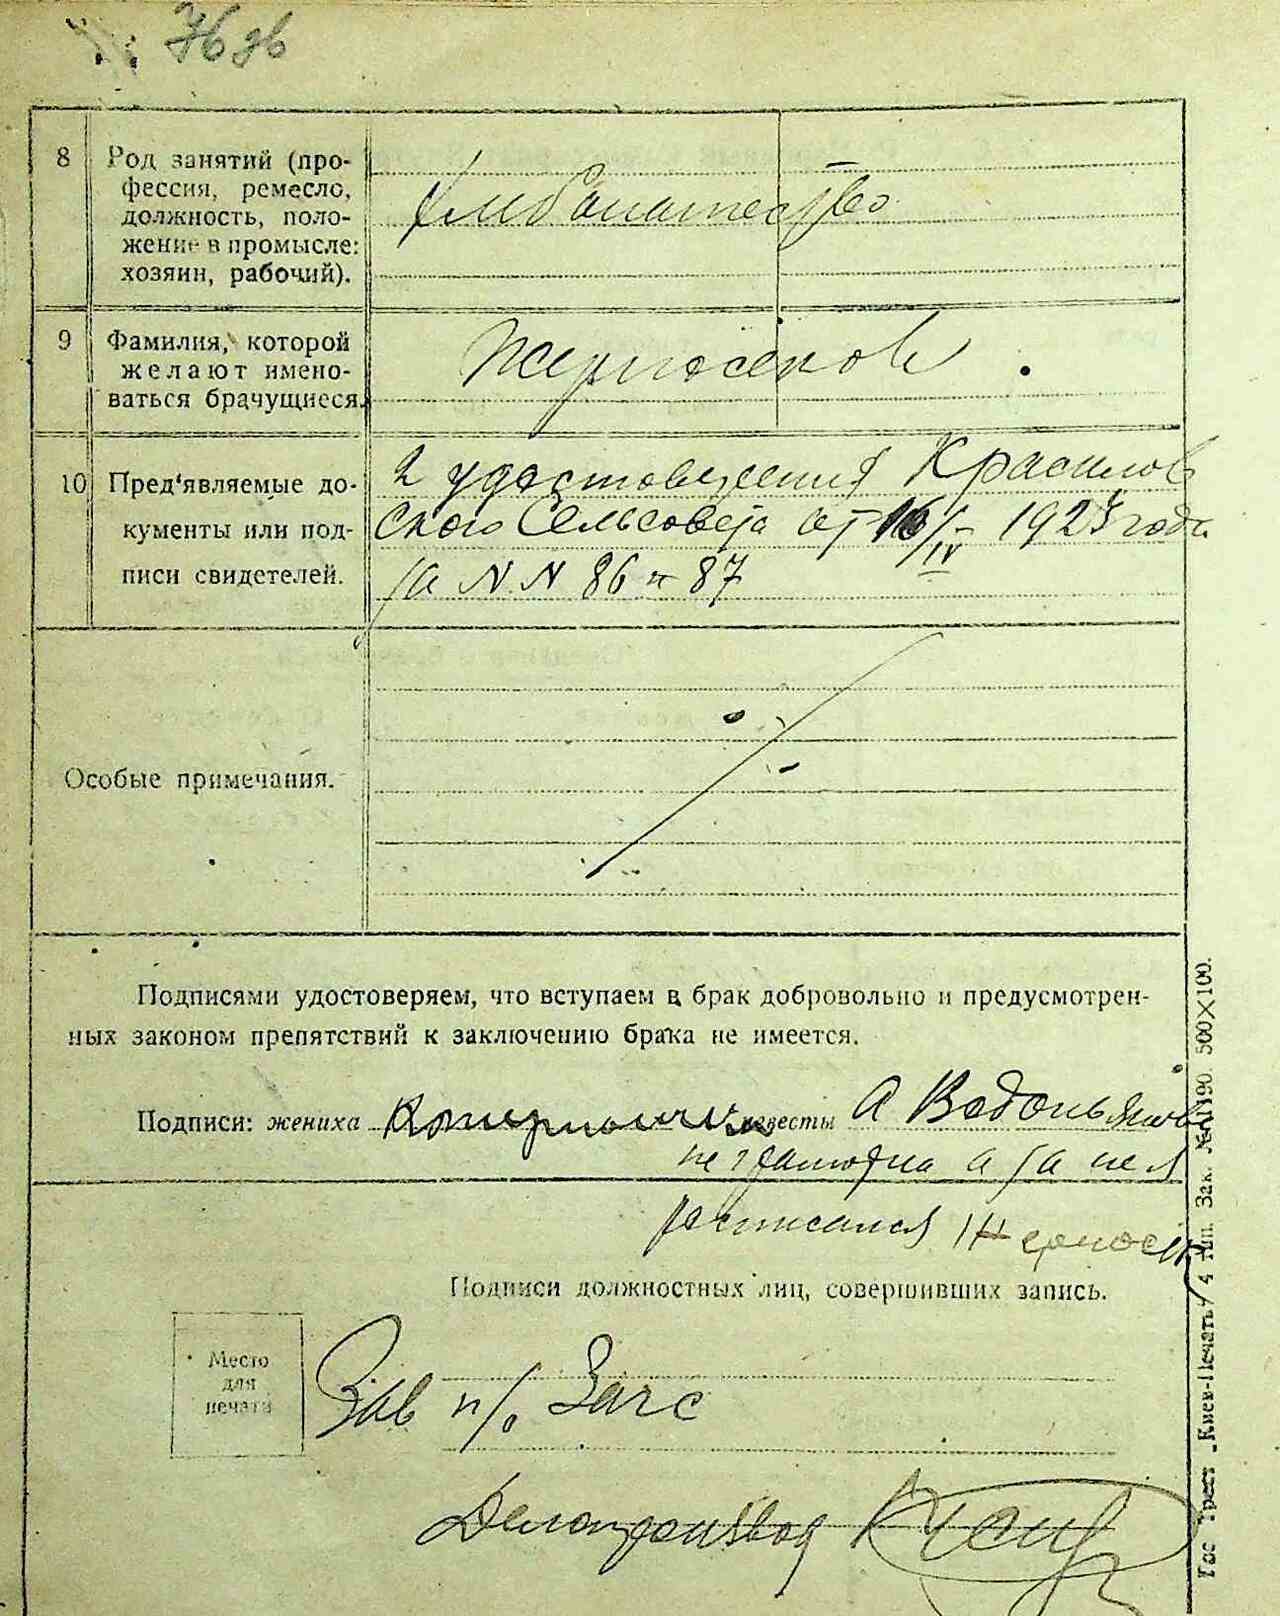 76 зв
8 Род занятий (про-
фессия, ремесло,
должность, поло-
жение в промысле:
хозяин, рабочий).
Хлибопашество
9 Фамилия, которой
желают имено-
ваться брачущиеся.
Жерносеков
10 Пред'являемые до-
кументы или под-
писи свидетелей.
2 удостоверения Красилов
ского Сельсовета от 16/IV 1923 года
за N N 86 и 87
Особые примечания.
Подписями удостоверяем, что вступаем в брак добровольно и предусмотрен-
ных законом препятствий к заключению брака не имеется.
Подписи: жениха невесты А Водопьянова
не грамотна а за нея
росписался Жерносек
Подписи должностных лиц, совершивших запись.
Место
для
печати
Зав п/о Загс
Делопроизвод
Гос Трест „Киев-Печать" 4 тип. Зак. № 1190. 500×100.